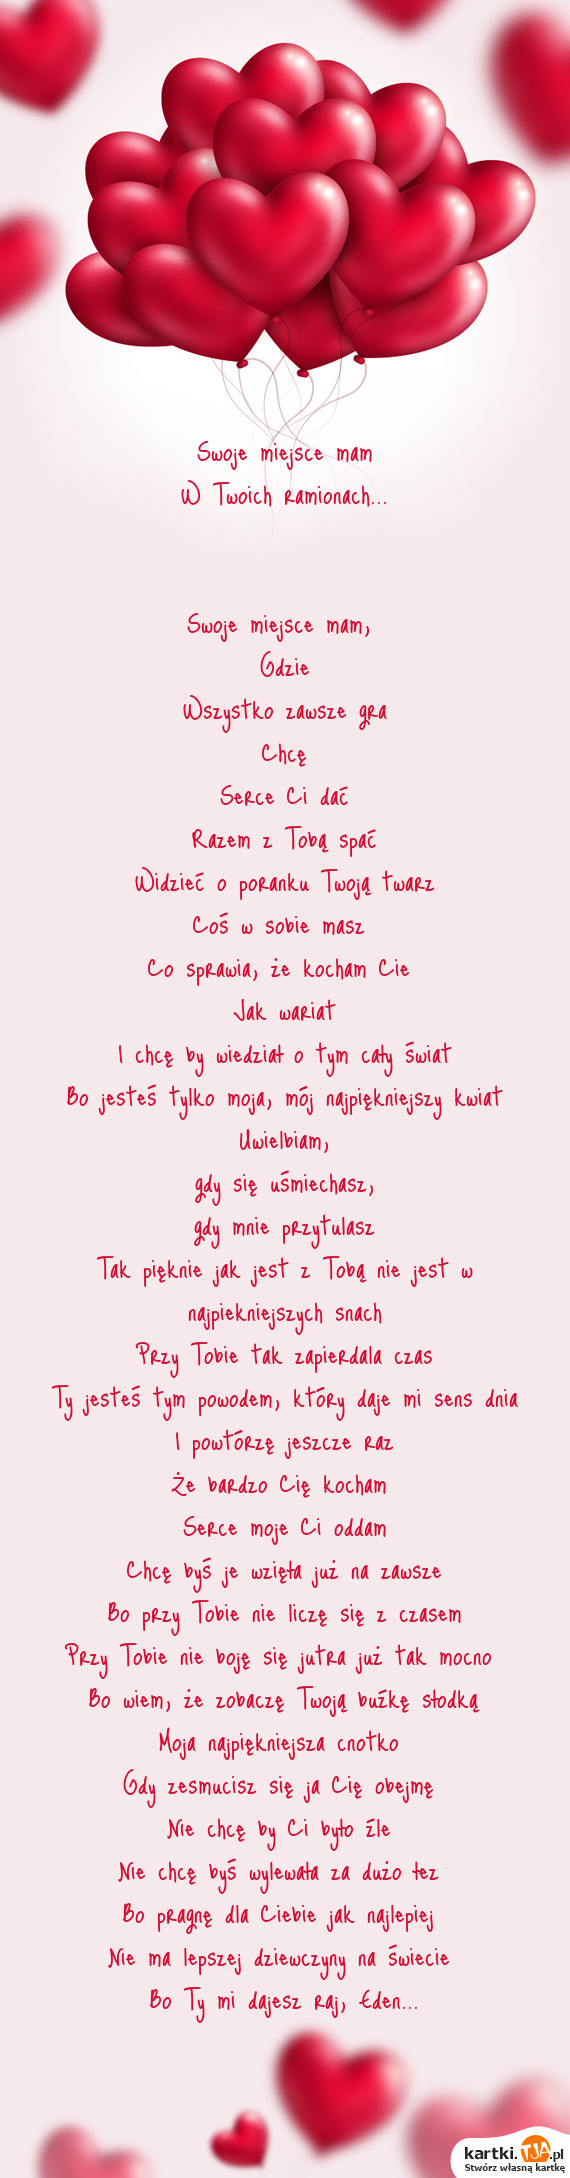 Swoje miejsce mam
W Twoich ramionach...
Swoje miejsce mam,
Gdzie
Wszystko zawsze gra
Chcę
Serce Ci dać
Razem z Tobą spać
Widzieć o poranku Twoją twarz
Coś w sobie masz
Co sprawia, że kocham Cie
Jak wariat
I chcę by wiedział o tym cały świat
Bo jesteś tylko moja, mój najpiękniejszy kwiat
Uwielbiam,
gdy się uśmiechasz,
gdy mnie przytulasz
Tak pięknie jak jest z Tobą nie jest w
najpiekniejszych snach
Przy Tobie tak zapierdala czas
Ty jesteś tym powodem, który daje mi sens dnia
I powtórzę jeszcze raz
Że bardzo Cię kocham
Serce moje Ci oddam
Chcę byś je wzięła już na zawsze
Bo przy Tobie nie liczę się z czasem
Przy Tobie nie boję się jutra już tak mocno
Bo wiem, że zobaczę Twoją buźkę słodką
Moja najpiękniejsza cnotko
Gdy zesmucisz się ja Cię obejmę
Nie chcę by Ci było źle
Nie chcę byś wylewała za dużo łez
Bo pragnę dla Ciebie jak najlepiej
Nie ma lepszej dziewczyny na świecie
Bo Ty mi dajesz raj, Eden...
kartki.TJA.pl
Stwórz własną kartkę